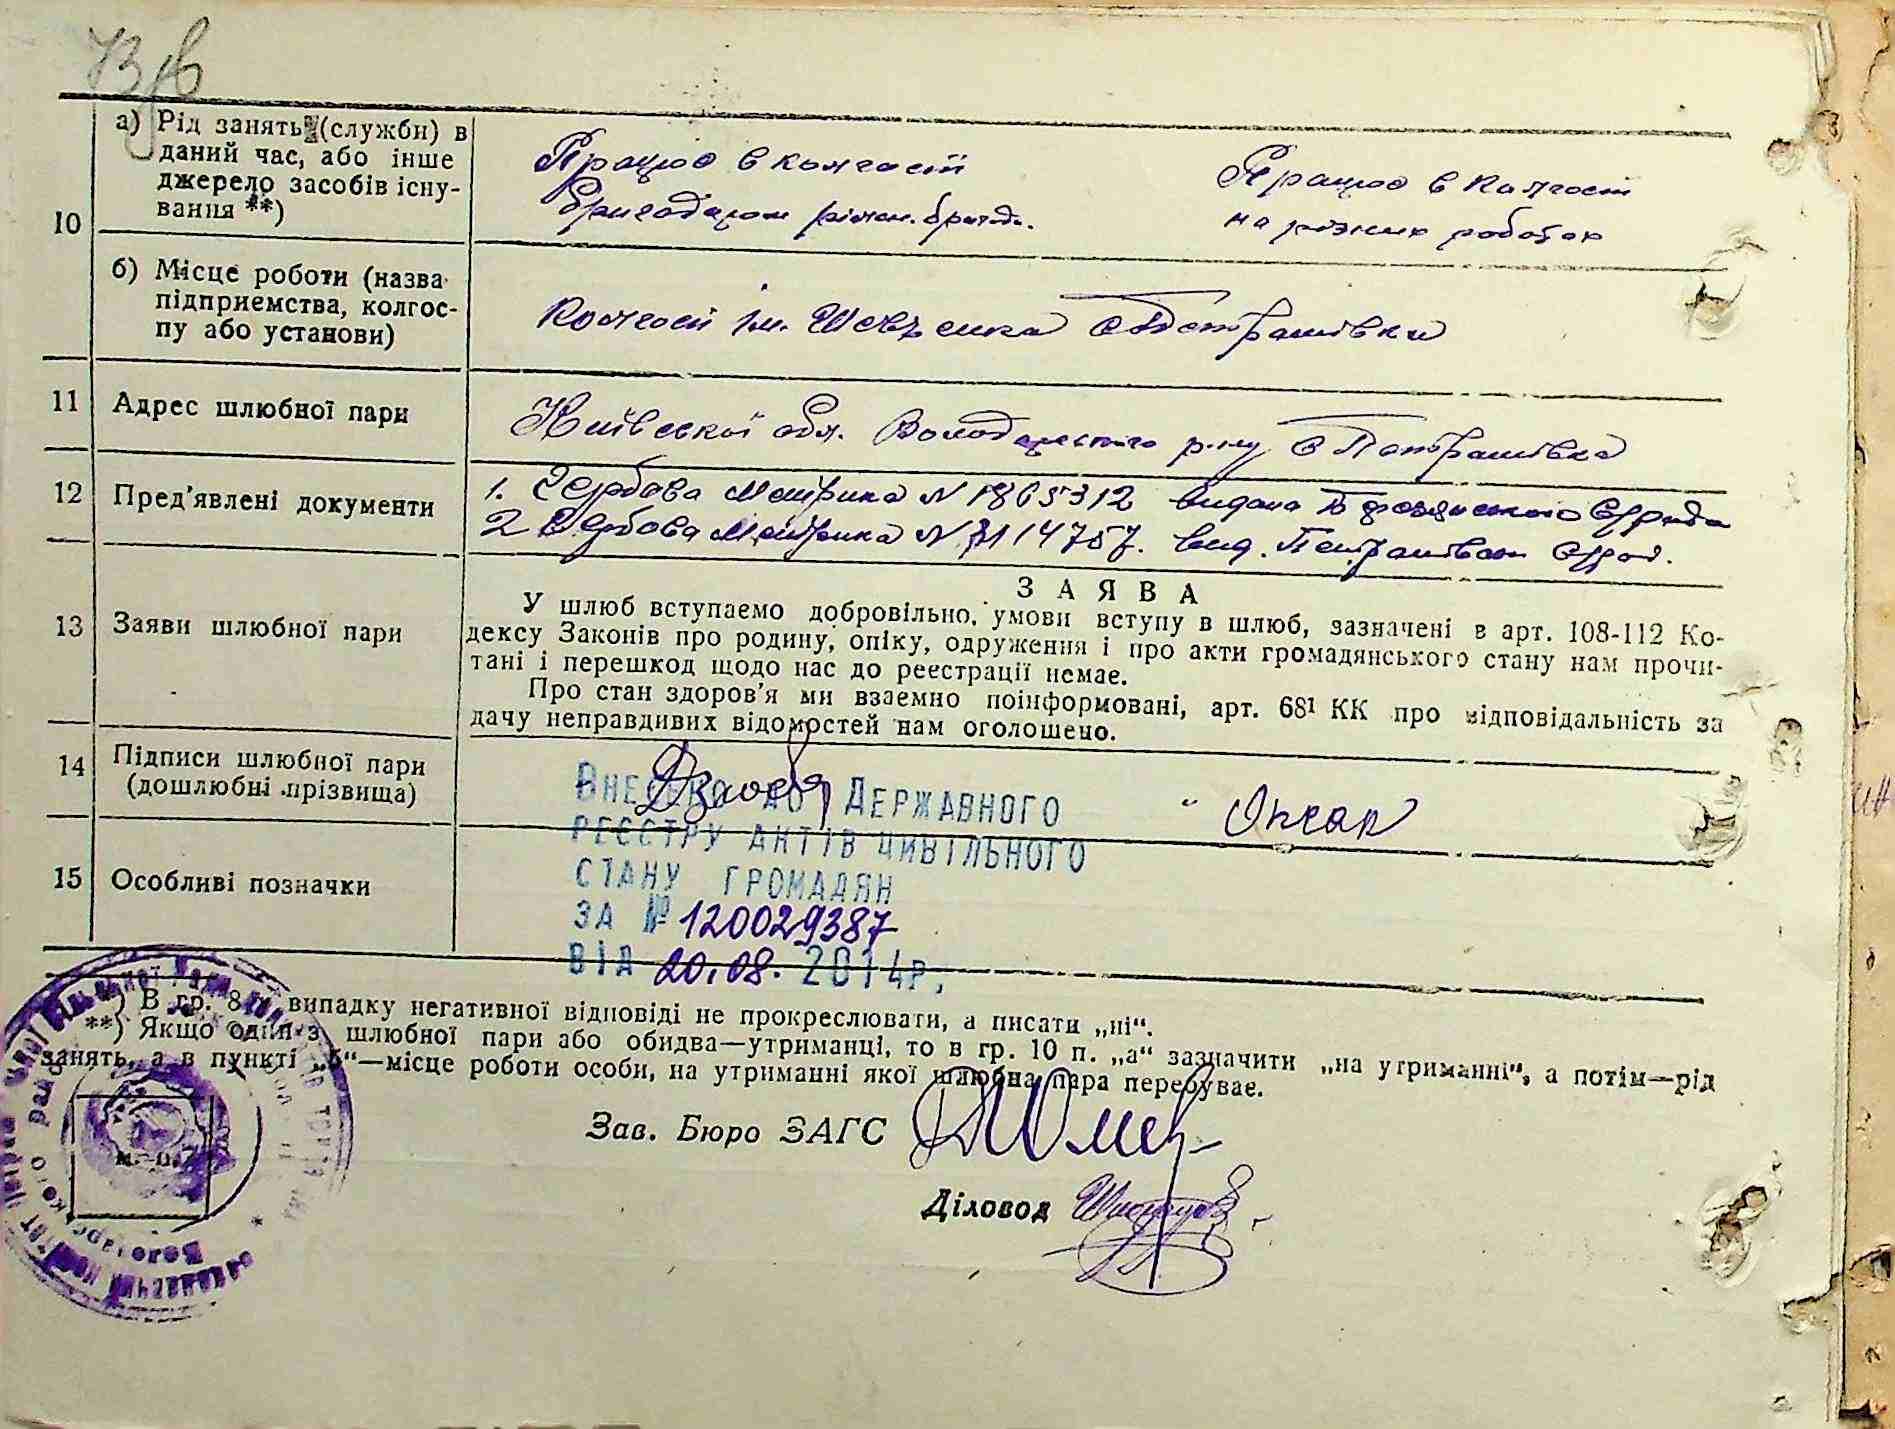 73
10
а) Рід занять (служби) в
даний час, або інше
джерело засобів існу-
вання **)
Працює в колгоспі
бригадиром рільн. бригади.
Працює в колгоспі
на різних роботах
б) Місце роботи (назва
підприємства, колгос-
пу або установи)
Колгосп ім. Шевченка с Петрашівки
11 Адрес шлюбної пари
Київської обл. Володарського р-ну с Петрашівка
12 Пред'явлені документи
1. Метрика N 1865312 видана
2 Метрика N
13 Заяви шлюбної пари
ЗАЯВА
У шлюб вступаємо добровільно, умови вступу в шлюб, зазначені в арт. 108-112 Ко-
дексу Законів про родину, опіку, одруження і про акти громадянського стану нам прочи-
тані і перешкод щодо нас до реєстрації немає.
Про стан здоров'я ми взаємно поінформовані, арт. 68¹ КК про відповідальність за
дачу неправдивих відомостей нам оголошено.
14 Підписи шлюбної пари
(дошлюбні прізвища)
ВНЕСЕНО ДО ДЕРЖАВНОГО
РЕЄСТРУ АКТІВ ЦИВІЛЬНОГО
СТАНУ ГРОМАДЯН
ЗА № 120029387
ВІД 20.08. 2014р.
15 Особливі позначки
*) В гр. 8 у випадку негативної відповіді не прокреслювати, а писати „ні“.
**) Якщо один з шлюбної пари або обидва—утриманці, то в гр. 10 п. „а“ зазначити „на утриманні“, а потім—рід
занять, а в пункті „б“—місце роботи особи, на утриманні якої шлюбна пара перебуває.
Зав. Бюро ЗАГС
Діловод